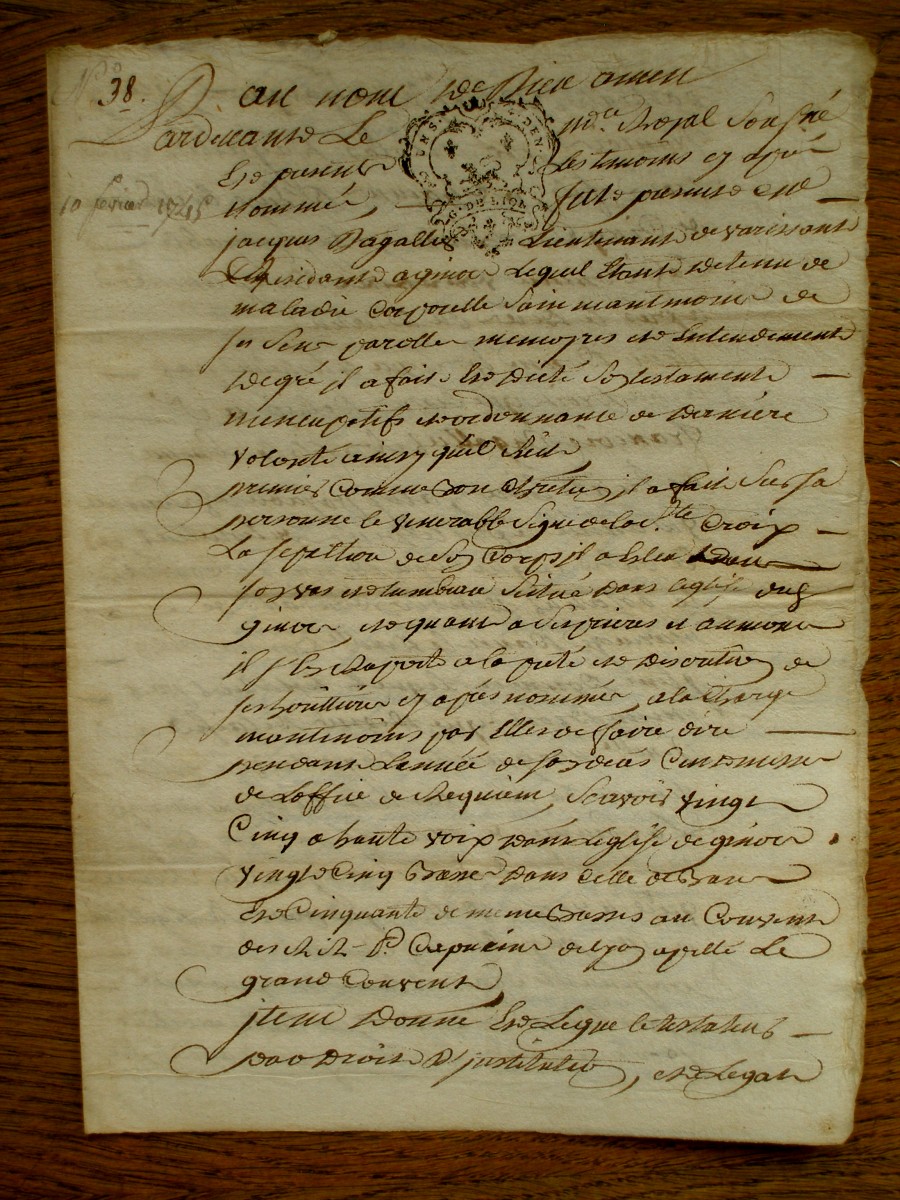 38.
au nom de Dieu amen
Pardevant Le no.re Royal Sousné
Et en presence Les temoins cy après
Nommés, fut present sr
10 fevrier 1745
jacques Dagallier Lieutenant de varissant
residant a ginor Lequel Etant detenu de
maladie corporelle sain neantmoins de
ses sens parolle memoyres et Entendement
de gré il a fait Et dicté son testament
nuncupatifs et ordonnance de derniere
volonté ainsy quil suit
premier comme bon chretien il a fait sur sa
personne le venerable signe de la Ste Croix
La sepulture de son Corps il a Esleu dans
son vas et tumbeau situé dans Leglise dud
ginor, et quant a ses prieres et aumones
il s'en Raporte a la pieté et discretion de
ses heritieres cy après nommées, a la charge
neantmoins par Elles de faire dire
pendant L'année de son deces Cent messes
de L'office de Requiem, Scavoir vingt
Cinq a haute voix dans Leglise de ginor
vingt Cinq Basses dans celle de
Et Cinquante de meme Basses au Couvent
des R R. P. Capucins de Lyon apellé Le
grand Couvent
jtem donne Et Legue le testateur
par droit d'jnstitution, et Legat
G. DE LYON